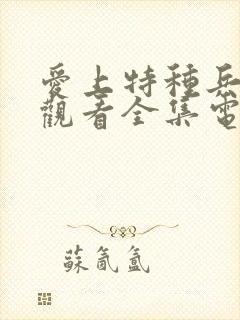 愛上特種兵
觀看全集電
蘇氤氳